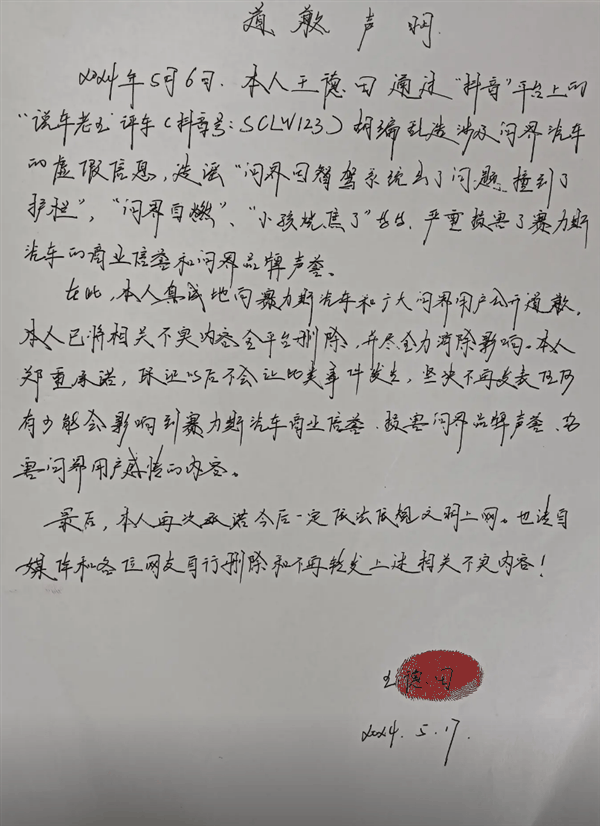 道歉声明
2024年5月6日，本人王德田通过“抖音”平台上的
“说车老王”评车（抖音号：SCLW123）胡编乱造涉及问界汽车
的虚假信息，造谣“问界因智驾系统出了问题撞到了
护栏”、“问界自燃”、“小孩烧焦了”等等，严重损害了赛力斯
汽车的商业信誉和问界品牌声誉。
在此，本人真诚地向赛力斯汽车和广大问界用户公开道歉，
本人已将相关不实内容全平台删除，并尽全力消除影响。本人
郑重承诺，保证以后不会让此类事件发生，坚决不再发表任何
有可能会影响到赛力斯汽车商业信誉、损害问界品牌声誉、伤
害问界用户感情的内容。
最后，本人再次承诺今后一定依法依规文明上网。也请自
媒体和各位网友自行删除和不再转发上述相关不实内容！
王德田
2024.5.17